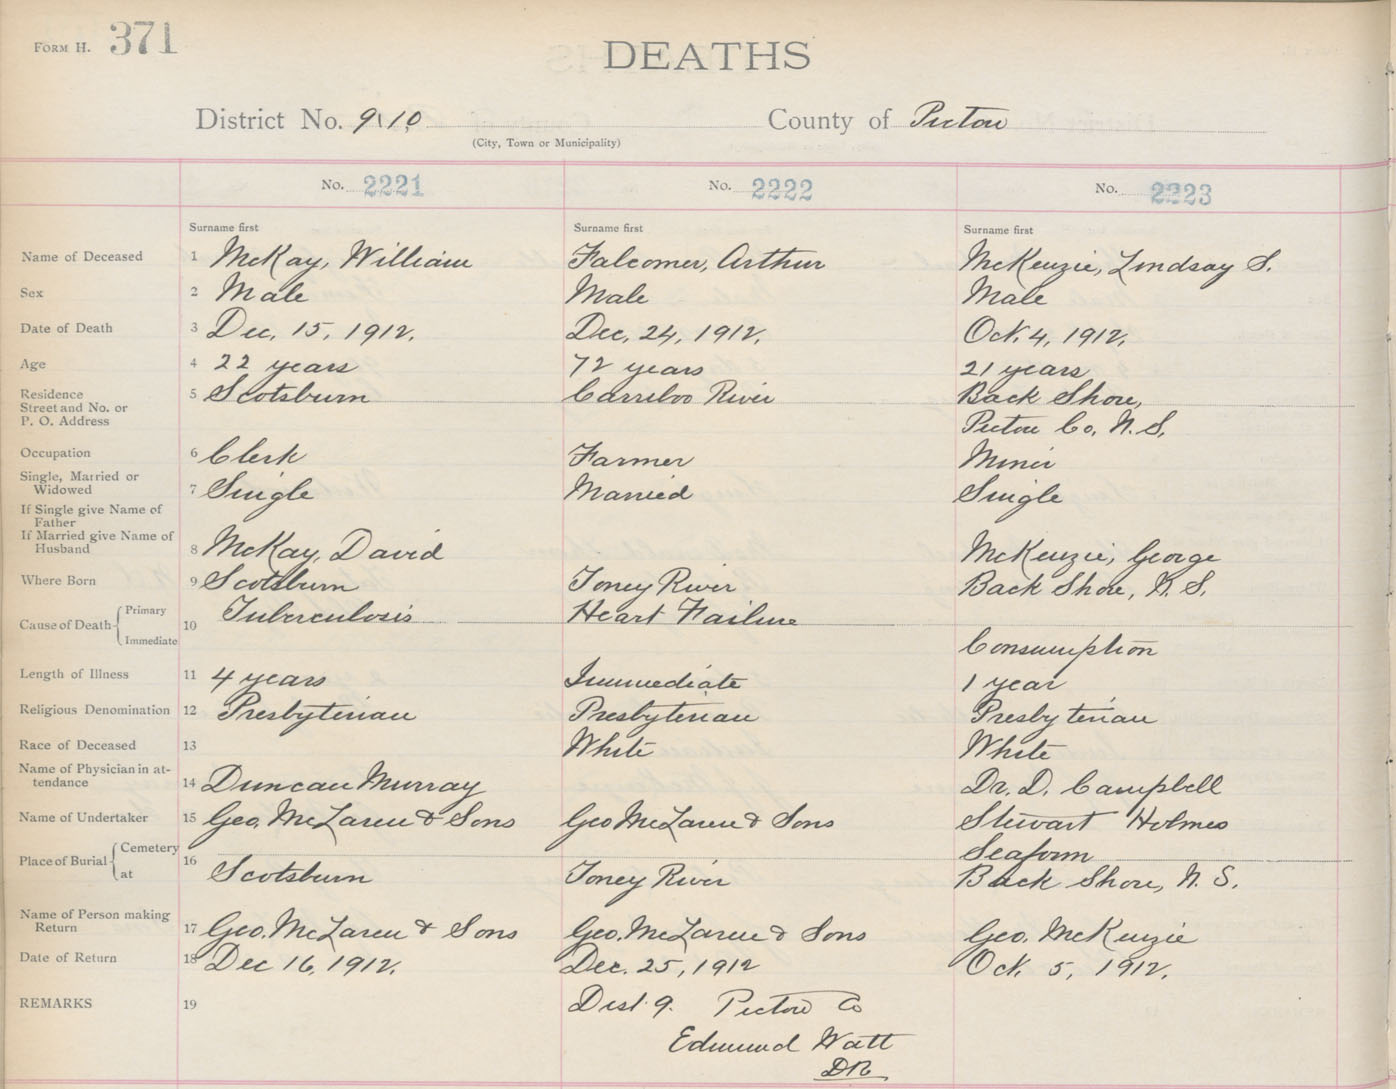 FORM H. 371
DEATHS
District No. 9\10 County of Pictou
(City, Town or Municipality)
No. 2221 No. 2222 No. 2223
Surname first Surname first Surname first
Name of Deceased 1 McKay, William Falconer, Arthur McKenzie, Lindsay S.
Sex 2 Male Male Male
Date of Death 3 Dec. 15, 1912. Dec. 24, 1912. Oct. 4, 1912.
Age 4 22 years 72 years 21 years
Residence
Street and No. or
P. O. Address
5 Scotsburn Carriboo River Back Shore,
Pictou Co, N. S.
Occupation 6 Clerk Farmer Miner
Single, Married or
Widowed
7 Single Married Single
If Single give Name of
Father
If Married give Name of
Husband
8 McKay, David McKenzie, George
Where Born 9 Scotsburn Toney River Back Shore, N. S.
Cause of Death Primary
Immediate
10 Tuberculosis Heart Failure
Consumption
Length of Illness 11 4 years Immediate 1 year
Religious Denomination 12 Presbyterian Presbyterian Presbyterian
Race of Deceased 13 White White
Name of Physician in at-
tendance
14 Duncan Murray Dr. D. Campbell
Name of Undertaker 15 Geo. McLaren & Sons Geo McLaren & Sons Stewart Holmes
Place of Burial Cemetery
at
16 Seaform
Scotsburn Toney River Back Shore, N. S.
Name of Person making
Return
17 Geo. McLaren & Sons Geo. McLaren & Sons Geo. McKenzie
Date of Return 18 Dec 16, 1912. Dec. 25, 1912 Oct. 5, 1912.
REMARKS 19 Dist. 9. Pictou Co
Edmund Watt
DR